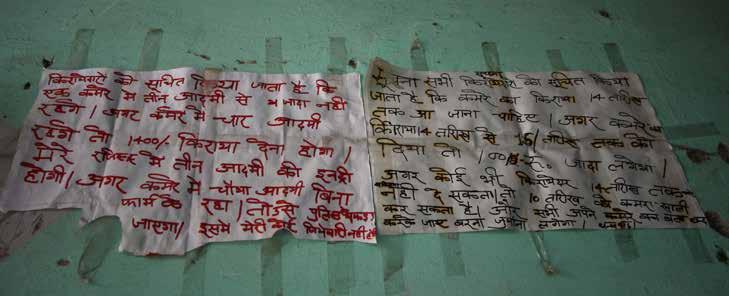 किरायेदारों को सूचित किया जाता है कि
एक कमरे में तीन आदमी से जादा नही
रहेगे। अगर कमरे में चार आदमी
रहेगे तो 1400/- किराया देना होगा।
मेरे में तीन आदमी की इनट्री
होगी। अगर कमरे में चौथा आदमी बिना
फार्म के रहा। तो उसे पुलिस
जाएगा। इसमे मेरी कोई जिम्मेवारी नही
सूचना सभी किरायेदारो को सूचित किया
जाता है कि कमरे का किराया 14 तारिख
तक आ जाना चाहिए। अगर कमरे का
किराया 14 तारिख से 15 तारिख तक नही
दिया तो 100/- रु. जादा लगेगा।
अगर कोई भी किरायेदार 14 तारिख तक
नही दे सकता तो 10 तारिख को कमरा खाली
कर सकता है। और सभी अपने कमरे का
करके जाए वरना जुर्माना लगेगा।